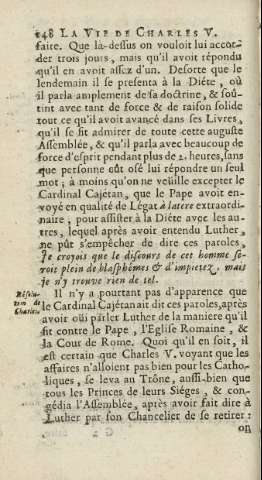 148 LA VIE DE CHARLES V.
faire. Que là-dessus on vouloit lui accor-
der trois jours, mais qu'il avoit répondu
qu'il en avoit assez d'un. Desorte que le
lendemain il se presenta à la Diéte, où
il parla amplement de sa doctrine, & soû-
tint avec tant de force & de raison solide
tout ce qu'il avoit avancé dans ses Livres,
qu'il se fit admirer de toute cette auguste
Assemblée, & qu'il parla avec beaucoup de
force d'esprit pendant plus de 2. heures, sans
que personne eût osé lui répondre un seul
mot; à moins qu'on ne veüille excepter le
Cardinal Cajétan, que le Pape avoit en-
voyé en qualité de Légat à latere extraordi-
naire; pour assister à la Diéte avec les au-
tres, lequel après avoir entendu Luther,
ne pût s'empêcher de dire ces paroles,
Je croyois que le discours de cet homme se-
rois plein de blasphêmes & d'impietez, mais
je n'y trouve rien de tel.
Il n'y a pourtant pas d'apparence que
le Cardinal Cajétan ait dit ces paroles, après
avoir oüi parler Luther de la maniere qu'il
fit contre le Pape, l'Eglise Romaine, &
la Cour de Rome. Quoi qu'il en soit, il
est certain que Charles V. voyant que les
affaires n'alloient pas bien pour les Catho-
liques, se leva au Trône, aussi-bien que
tous les Princes de leurs Siéges, & con-
gédia l'Assemblée, après avoir fait dire à
Luther par son Chancelier de se retirer:
on